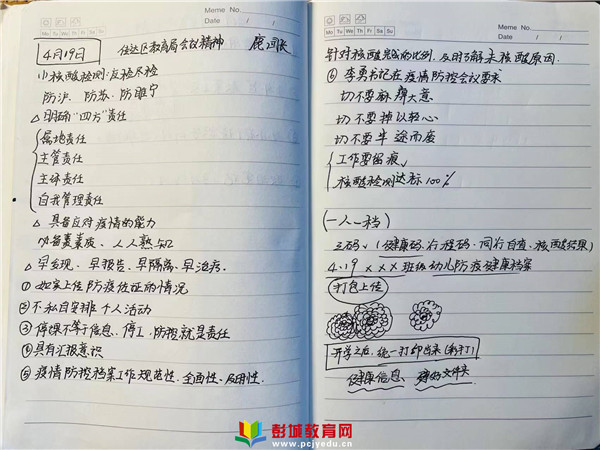 Meme No.
Date / /
Mo Tu We Th Fr Sa Su
4月19日 传达区教育局会议精神 鹿园长
小核酸检测:应检尽检
防沪、防苏、防睢宁
△明确"四方"责任
属地责任
主管责任
主体责任
自我管理责任
△具备应对疫情的能力
人人熟知
△早发现、早报告、早隔离、早治疗.
①如实上传防疫佐证的情况
②不私自安排个人活动
③停课不等于信息、停工,防控就是责任
④具有汇报意识
⑤疫情防控档案工作规范性、全面性、及时性.
Meme No.
Date / /
Mo Tu We Th Fr Sa Su
针对核酸完成的比例,及时了解未核酸原因.
⑥李勇书记在疫情防控会议要求
切不要麻痹大意
切不要掉以轻心
切不要半途而废
工作要留痕
核酸检测达标100%
(一人一档)
(健康码、行程码、同行自查、核酸结果)
4.19 XXX班级幼儿防疫健康档案
打包上传
开学之后,统一打印出来
健康信息 文件夹
彭城教育网
www.pcjyedu.com